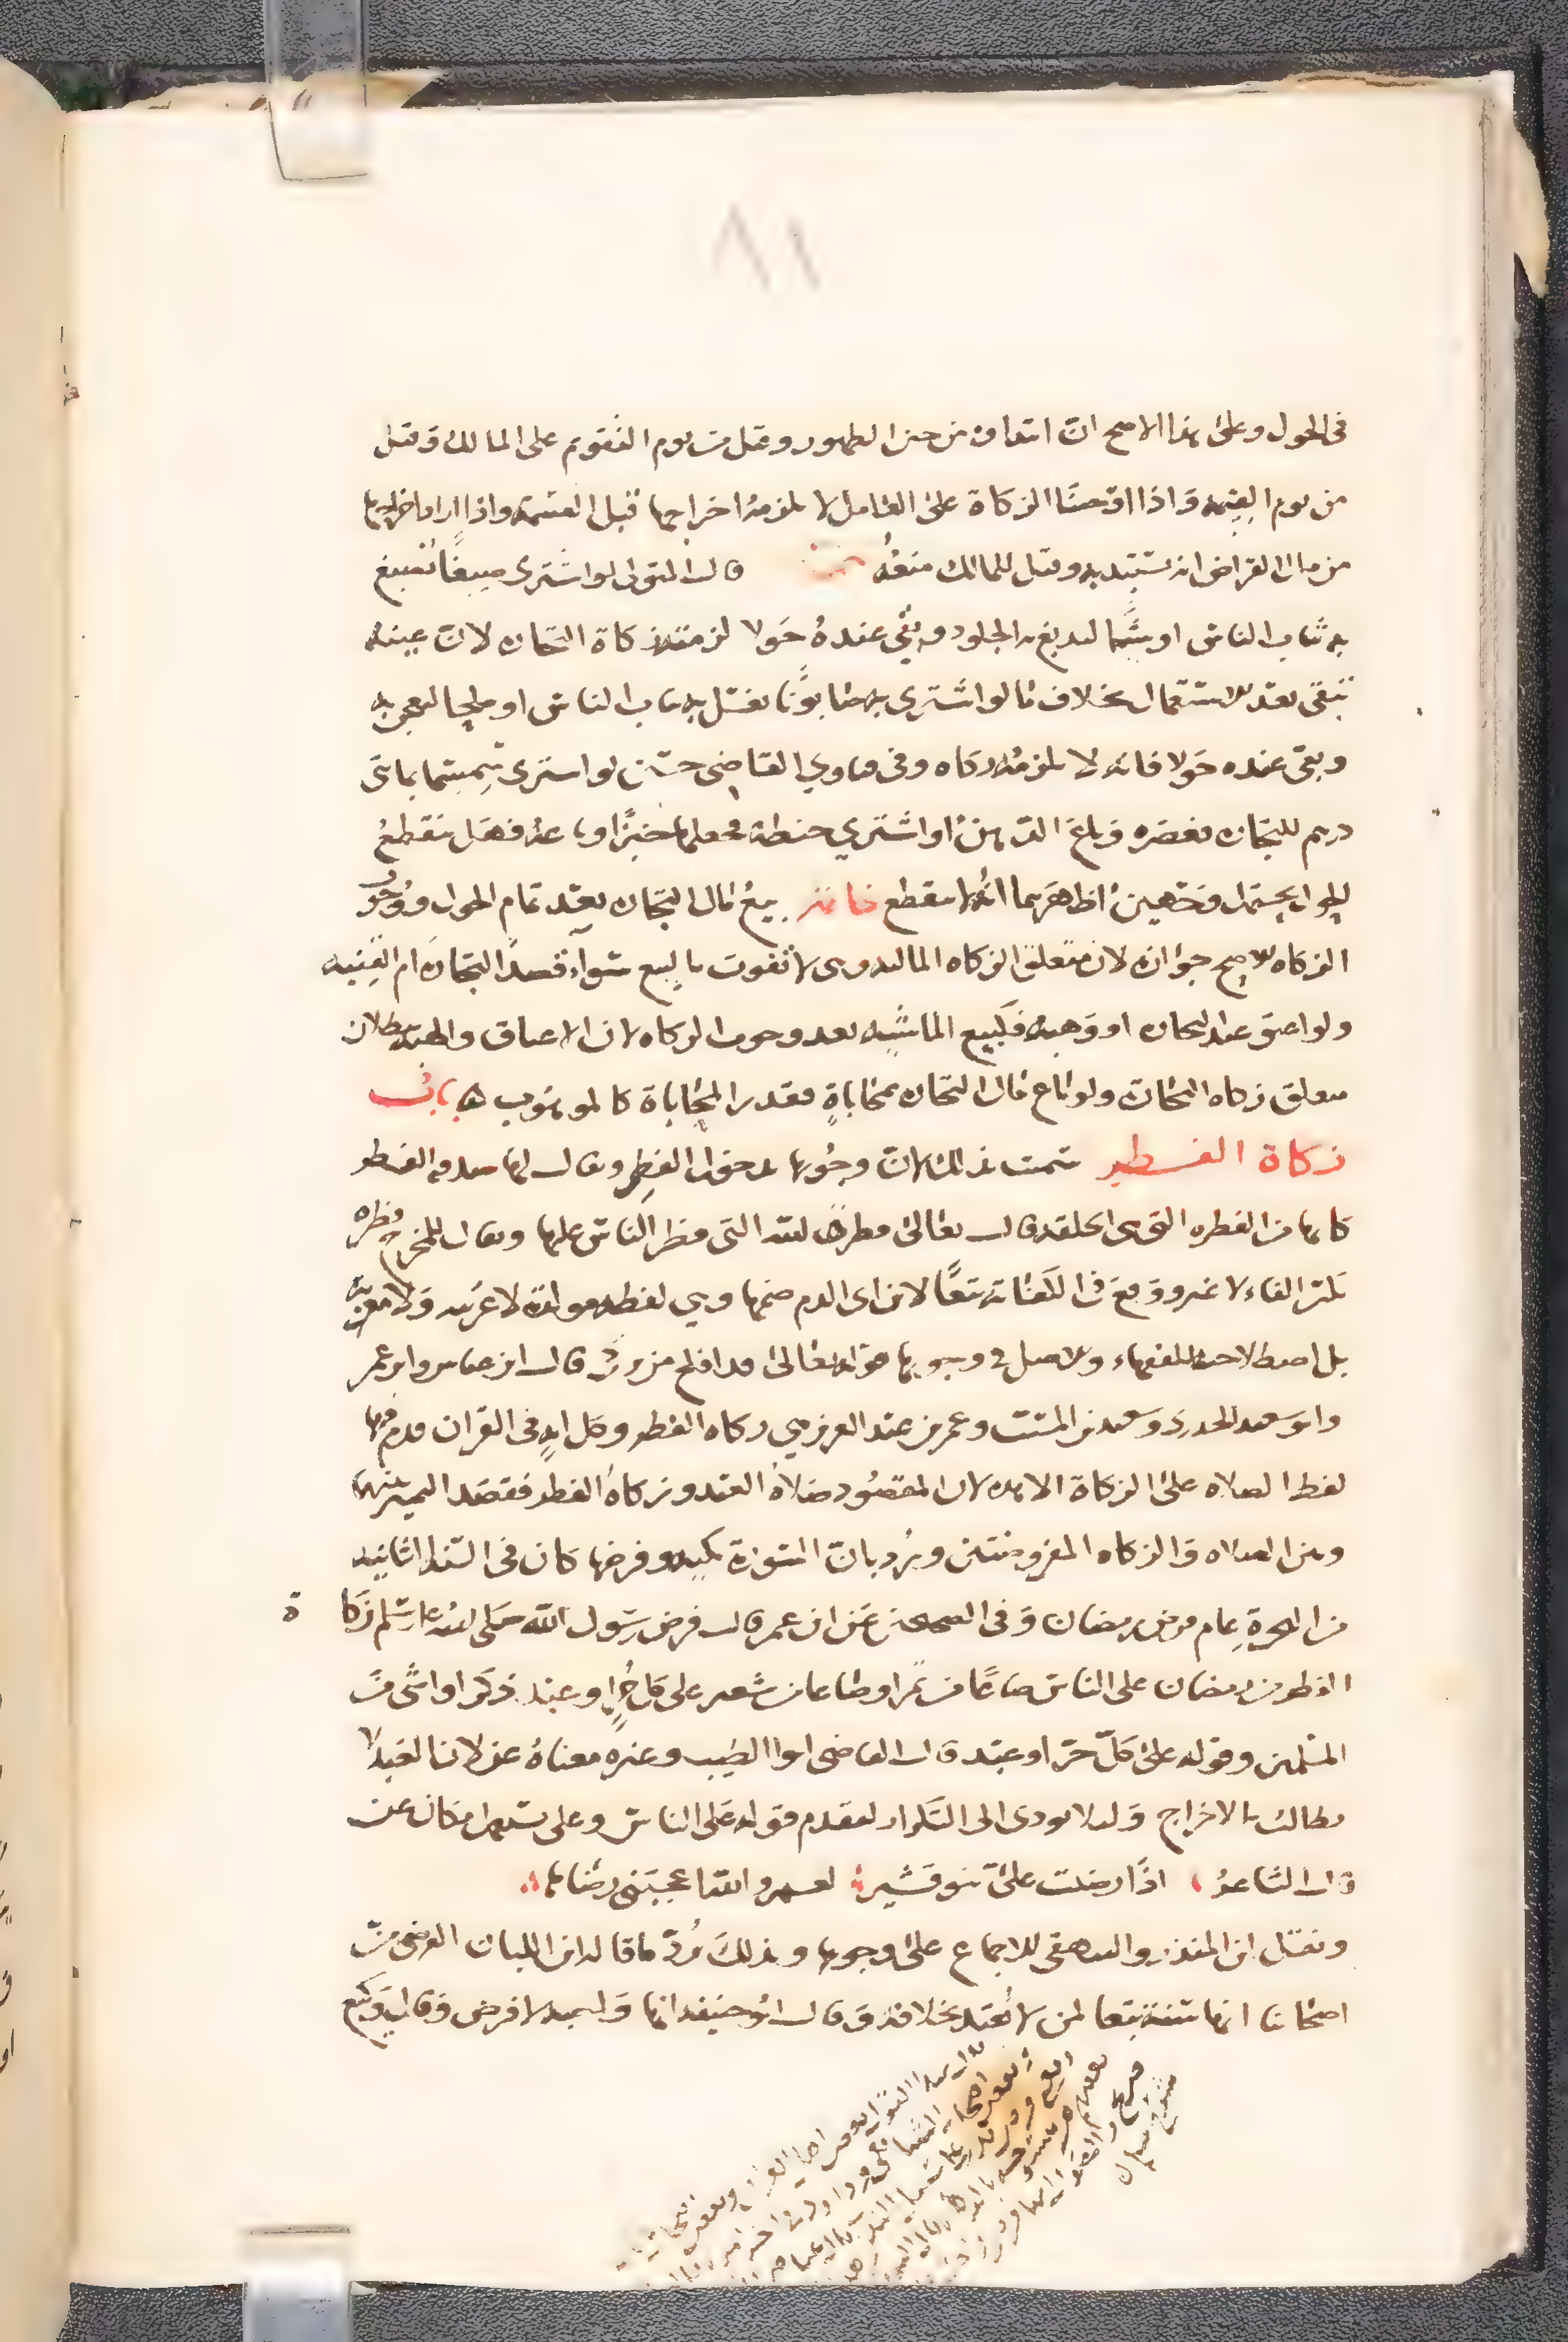 ٨١
في الحول وعلى هذا الاصح ان ابتداه من حين الظهور وقيل من يوم التقويم على المالك وقيل
من يوم القسمة واذا اوجبنا الزكاة على العامل لا يلزمه اخراجها قبل القسمة واذا اراد اخراجها
من مال القراض انه يستبد به وقيل للمالك منعه قال المتولي لو اشترى صبغًا ليصبغ
به ثياب الناس او شيئا ليدبغ به الجلود وبقي عنده حولا لزمته زكاة التجاره لان عينه
تبقى بعد الاستعمال بخلاف ما لو اشترى به صابونًا يغسل به ثياب الناس او ملحا ليعجن به
وبقي عنده حولا فانه لا يلزمه زكاه وفي فتاوي القاضي حسين لو اشترى سمسما بمائتي
درهم للتجاره فعصره وباع الدهن او اشترى حنطة فجعلها خبزًا وباعه فهل ينقطع
الحول يحتمل وجهين اظهرهما انه لا ينقطع خاتمة بيع مال التجاره بعد تمام الحول ووجوب
الزكاه الاصح جوازه لان متعلق الزكاه الماليه وهي لا تفوت بالبيع سواء قصد التجاره ام القنيه
ولو اعتق عبد التجاره او وهبه فكبيع الماشيه بعد وجوب الزكاه لان الاعتاق والهبه يبطلان
متعلق زكاه التجاره ولو باع مال التجاره بمحاباةٍ فقدر المحاباة كالموهوب باب
زكاة الفطر سميت بذلك لان وجوبها بدخول الفطر ويقال لها صدقه الفطر
كانها من الفطره التي هي الخلقه قال تعالى فطرة الله التي فطر الناس عليها ويقال للمخرج فطره
بكسر الفاء لا غير ووقع في الكفاية تبعًا لابن ابي الدم ضمها وهي لفظه مولده لا عربيه ولا معربه
بل اصطلاحيه للفقهاء والاصل في وجوبها قوله تعالى قد افلح من تزكى قال ابن عباس وابن عمر
وابو سعيد الخدري وسعيد بن المسيب وعمر بن عبد العزيز هي زكاه الفطر وكل ايه في القران قدم فيها
لفظ الصلاه على الزكاة الا هذه لان المقصود صلاة العيد وزكاة الفطر فقصد التمييز بينها
وبين الصلاه والزكاه المفروضتين ويرد بان السورة مكيه وفرضها كان في السنه الثانيه
من الهجرة عام فرض رمضان وفي الصحيحين عن ابن عمر قال فرض رسول الله صلى الله عليه وسلم زكاة
الفطر من رمضان على الناس صاعًا من تمر او صاعا من شعير على كل حرٍ او عبد ذكر او انثى من
المسلمين وقوله على كل حرّ او عبد قال القاضي ابو الطيب وغيره معناه عن لان العبد لا
يطالب بالاخراج ولئلا يودى الى التكرار لتقدم قوله على الناس وعلى تستعمل مكان عن
قال الشاعر اذا رضيت علىّ بنو قشير لعمرو الله اعجبني رضاها
ونقل ابن المنذر والبيهقي الاجماع على وجوبها وبذلك يُردّ ما قاله ابن اللبان الفرضي من
اصحابنا انها سنة تبعا لمن لا يُعتد بخلافه وقال ابو حنيفه انها واجبه لا فرض وقال وكيع